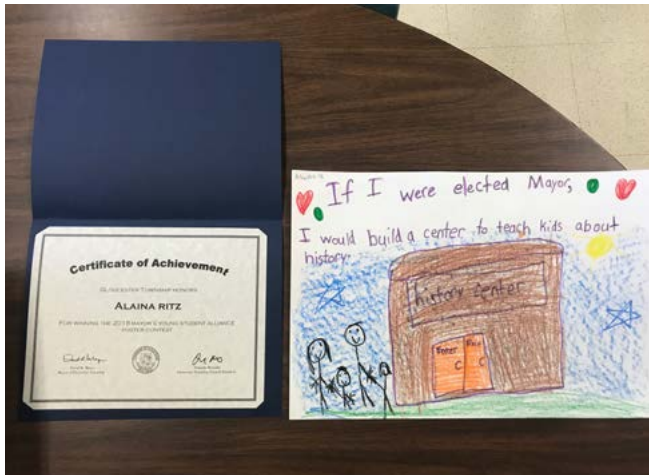 Certificate of Achievement
GLOUCESTER TOWNSHIP HONORS
ALAINA RITZ
FOR WINNING THE 2019 MAYOR'S YOUNG STUDENT ALLIANCE
POSTER CONTEST
If I were elected Mayor,
I would build a center to teach kids about
history.
history center
Enter